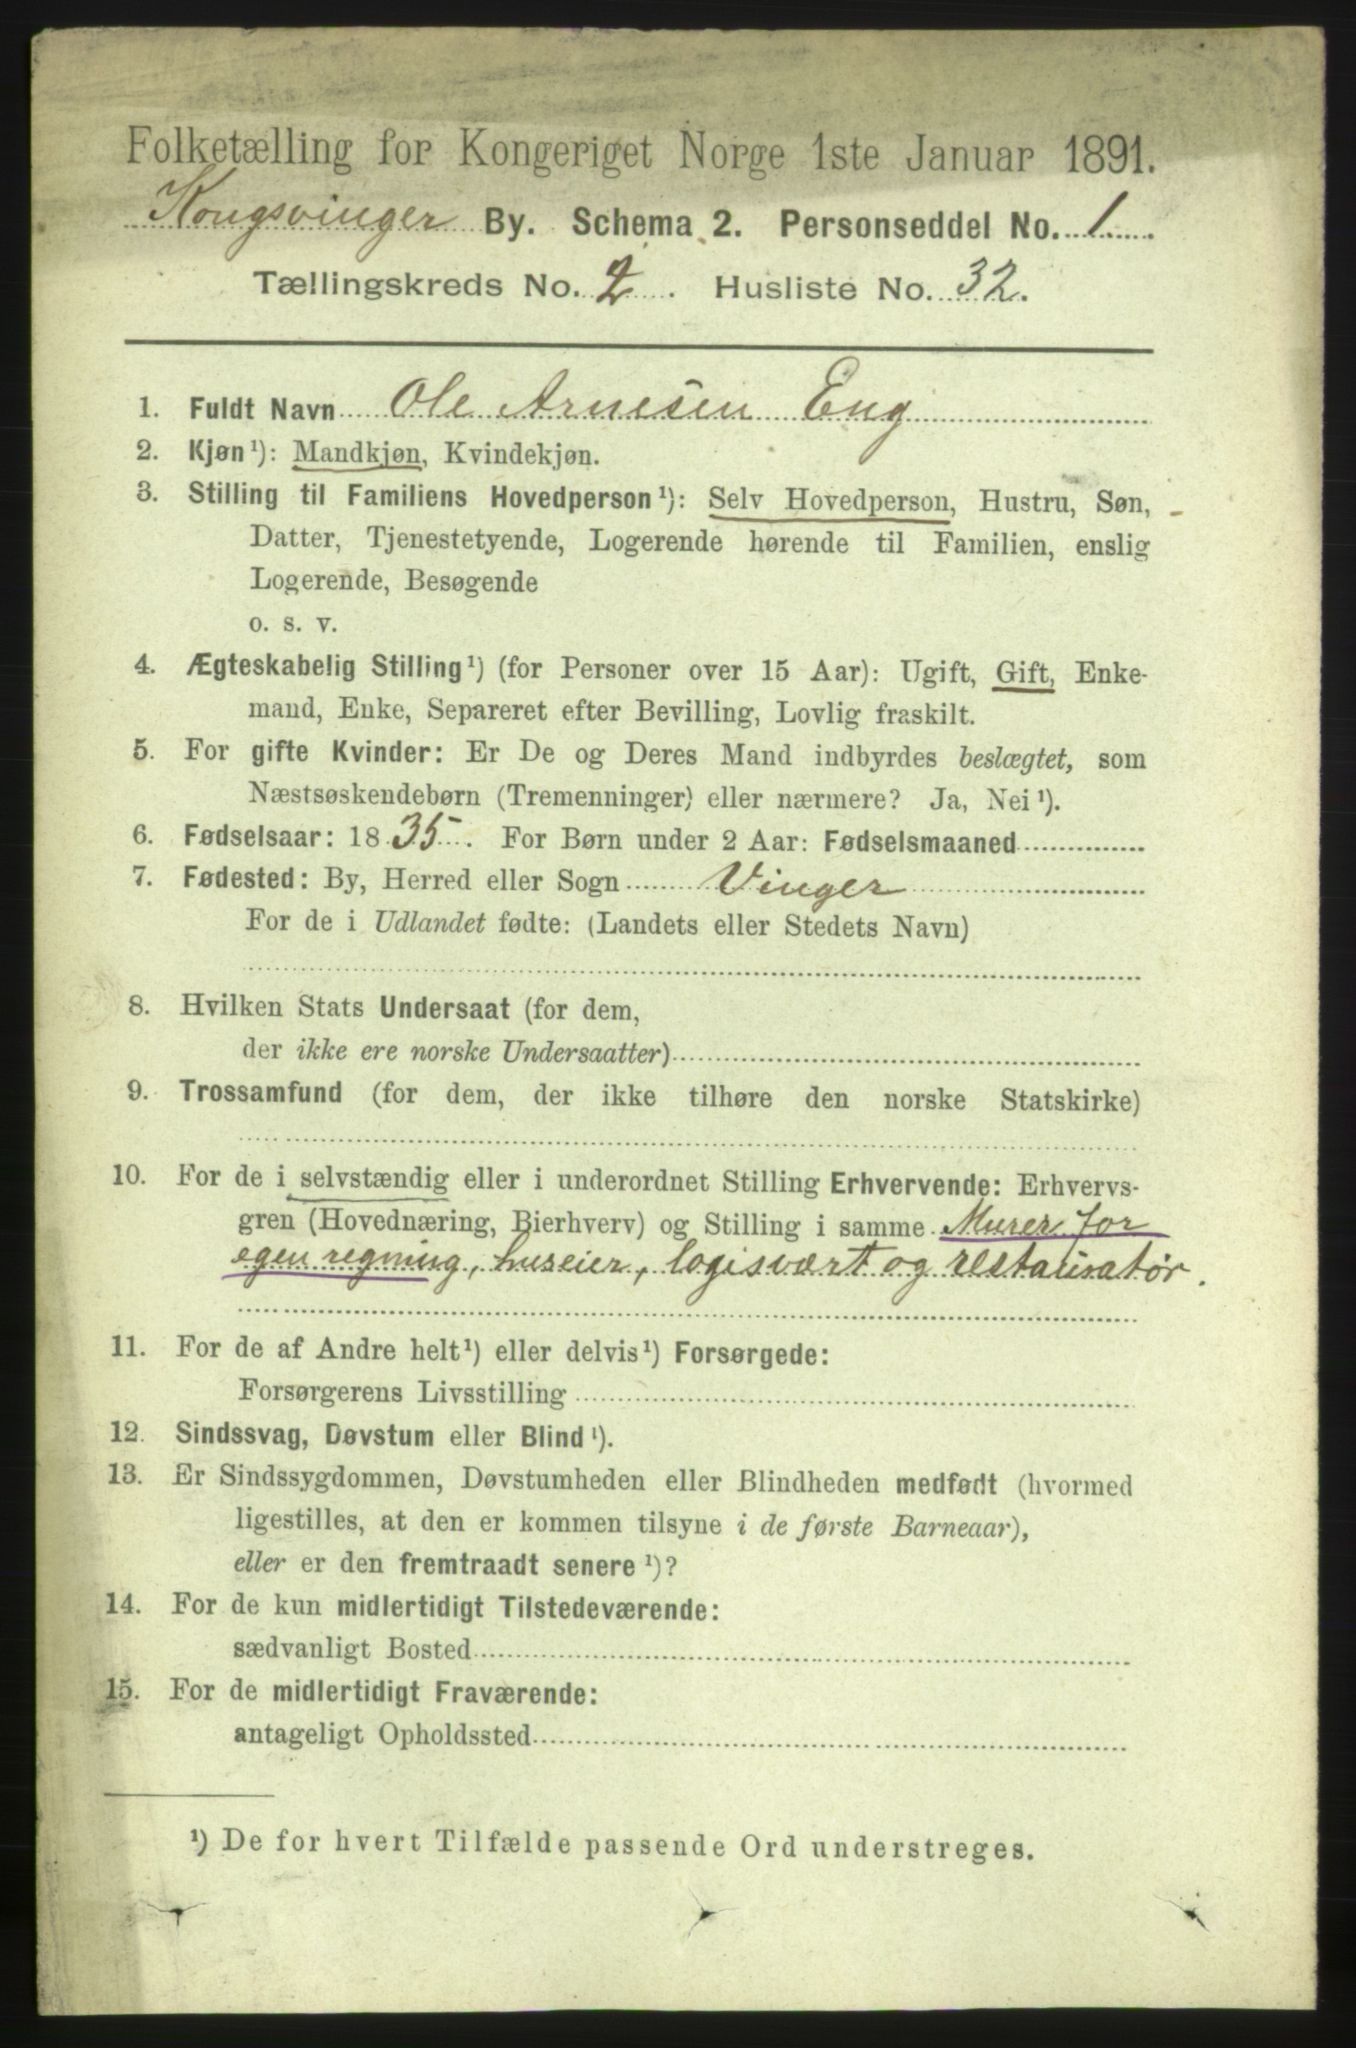 Folketælling for Kongeriget Norge 1ste Januar 1891.
Kongsvinger By. Schema 2. Personseddel No. 1
Tællingskreds No. 2. Husliste No. 32.
1. Fuldt Navn Ole Arnesen Eng
2. Kjøn¹): Mandkjøn, Kvindekjøn.
3. Stilling til Familiens Hovedperson¹): Selv Hovedperson, Hustru, Søn,
Datter, Tjenestetyende, Logerende hørende til Familien, enslig
Logerende, Besøgende
o. s. v.
4. Ægteskabelig Stilling¹) (for Personer over 15 Aar): Ugift, Gift, Enke-
mand, Enke, Separeret efter Bevilling, Lovlig fraskilt.
5. For gifte Kvinder: Er De og Deres Mand indbyrdes beslægtet, som
Næstsøskendebørn (Tremenninger) eller nærmere? Ja, Nei¹).
6. Fødselsaar: 1835. For Børn under 2 Aar: Fødselsmaaned
7. Fødested: By, Herred eller Sogn Vinger
For de i Udlandet fødte: (Landets eller Stedets Navn)
8. Hvilken Stats Undersaat (for dem,
der ikke ere norske Undersaatter)
9. Trossamfund (for dem, der ikke tilhøre den norske Statskirke)
10. For de i selvstændig eller i underordnet Stilling Erhvervende: Erhvervs-
gren (Hovednæring, Bierhverv) og Stilling i samme Murer for
egen regning, huseier, logisvært og restauratør.
11. For de af Andre helt¹) eller delvis¹) Forsørgede:
Forsørgerens Livsstilling
12. Sindssvag, Døvstum eller Blind¹).
13. Er Sindssygdommen, Døvstumheden eller Blindheden medfødt (hvormed
ligestilles, at den er kommen tilsyne i de første Barneaar),
eller er den fremtraadt senere¹)?
14. For de kun midlertidigt Tilstedeværende:
sædvanligt Bosted
15. For de midlertidigt Fraværende:
antageligt Opholdssted
¹) De for hvert Tilfælde passende Ord understreges.